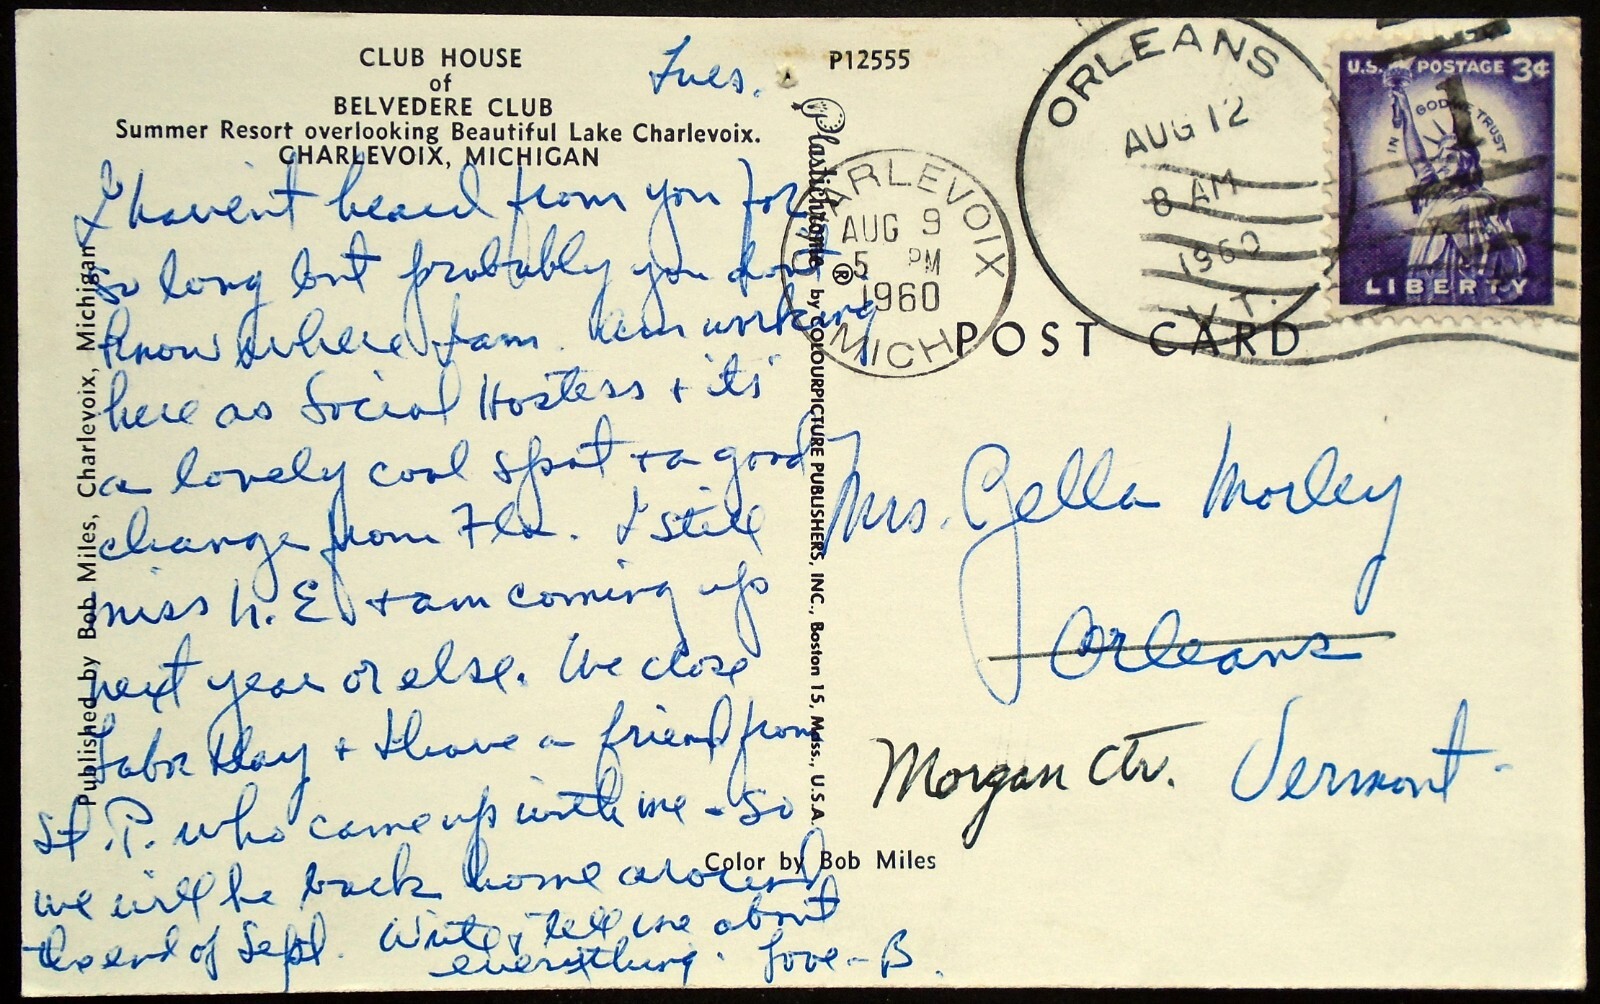 CLUB HOUSE
of
BELVEDERE CLUB
Summer Resort overlooking Beautiful Lake Charlevoix.
CHARLEVOIX, MICHIGAN
Tues.
P12555
I haven't heard from you for
so long but probably you don't
know where I am. Am working
here as Social Hostess + its
a lovely cool spot + a good
change from Fla. I still
miss N.E. + am coming up
next year or else. We close
Labor Day + I have a friend from
St. P. who came up with me - so
we will be back home around
the end of Sept. Write + tell me about
everything. Love - B.
Published by Bob Miles, Charlevoix, Michigan
Plastichrome ® by COLOURPICTURE PUBLISHERS, INC., Boston 15, Mass., U.S.A.
Color by Bob Miles
CHARLEVOIX
AUG 9
5 PM
1960
MICH
ORLEANS
AUG 12
8 AM
1960
VT.
U.S. POSTAGE 3¢
IN GOD WE TRUST
LIBERTY
POST CARD
Mrs. Morley
Orleans
Morgan Ctr. Vermont